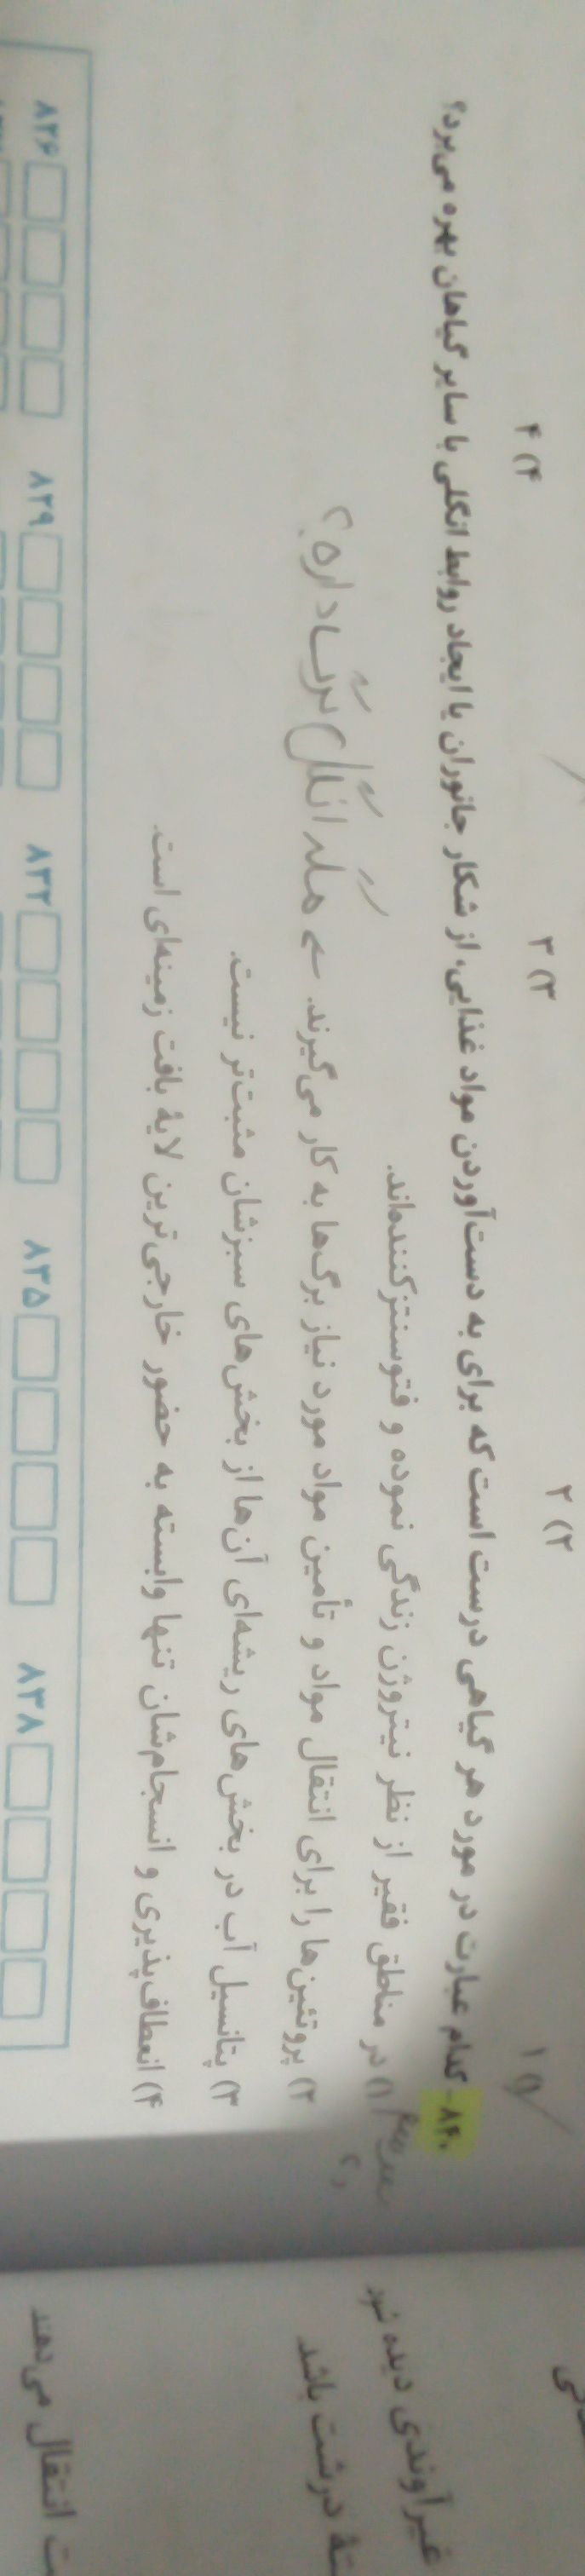 ۱) ۱ ۲) ۲ ۳) ۳ ۴) ۴
۸۴۰- کدام عبارت در مورد هر گیاهی درست است که برای به دست‌آوردن مواد غذایی، از شکار جانوران یا ایجاد روابط انگلی با سایر گیاهان بهره می‌برد؟
۱) در مناطق فقیر از نظر نیتروژن زندگی نموده و فتوسنتزکننده‌اند.
۲) پروتئین‌ها را برای انتقال مواد و تأمین مواد مورد نیاز برگ‌ها به کار می‌گیرند. مگه انگل برگ داره؟
۳) پتانسیل آب در بخش‌های ریشه‌ای آن‌ها از بخش‌های سبزشان مثبت‌تر نیست.
۴) انعطاف‌پذیری و انسجام‌شان تنها وابسته به حضور خارجی‌ترین لایهٔ بافت زمینه‌ای است.
۸۲۶ ۸۲۹ ۸۳۲ ۸۳۵ ۸۳۸
غیرآوندی دیده شود
درشت باشد
انتقال می‌دهند